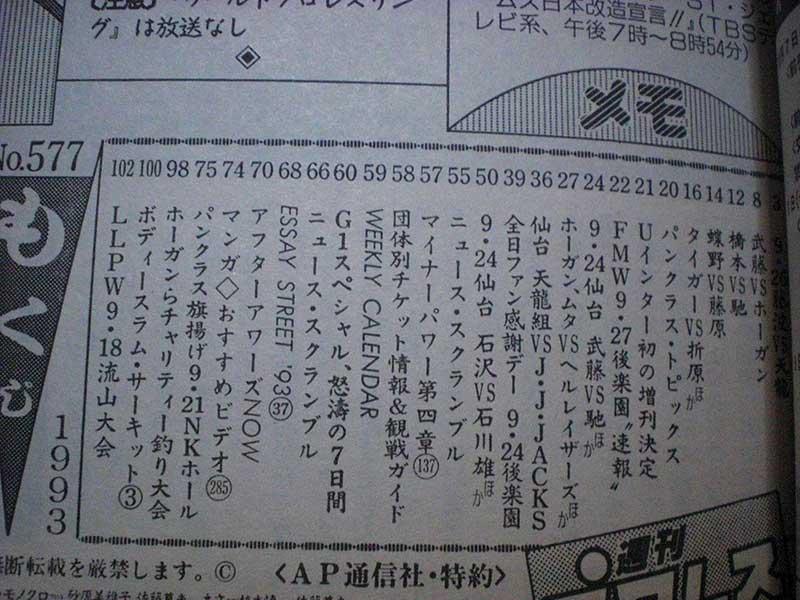 グ』は放送なし
ムス日本改造宣言//』(TBSテ
レビ系、午後7時〜8時54分)
メモ
No.577
もくじ
1993
3
8 武藤VSホーガン
12 橋本VS馳
14 蝶野VS藤原
16 タイガーVS折原ほか
20 パンクラス・トピックス
21 Uインター初の増刊決定
22 FMW9・27後楽園〝速報〟
24 9・24仙台 武藤VS馳ほか
27 ホーガン、ムタVSヘルレイザーズほか
36 仙台 天龍組VSJ・J・JACKS
39 全日ファン感謝デー 9・24後楽園
50 9・24仙台 石沢VS石川雄ほか
55 ニュース・スクランブル
57 マイナーパワー第四章(137)
58 団体別チケット情報&観戦ガイド
59 WEEKLY CALENDAR
60 G1スペシャル、怒濤の7日間
66 ニュース・スクランブル
68 ESSAY STREET '93㊲
70 アフターアワーズNOW
74 マンガ◇おすすめビデオ(285)
75 パンクラス旗揚げ9・21NKホール
98 ホーガンらチャリティー釣り大会
100 ボディースラム・サーキット③
102 LLPW9・18流山大会
断転載を厳禁します。©
〈AP通信社・特約〉
週刊
プロレス